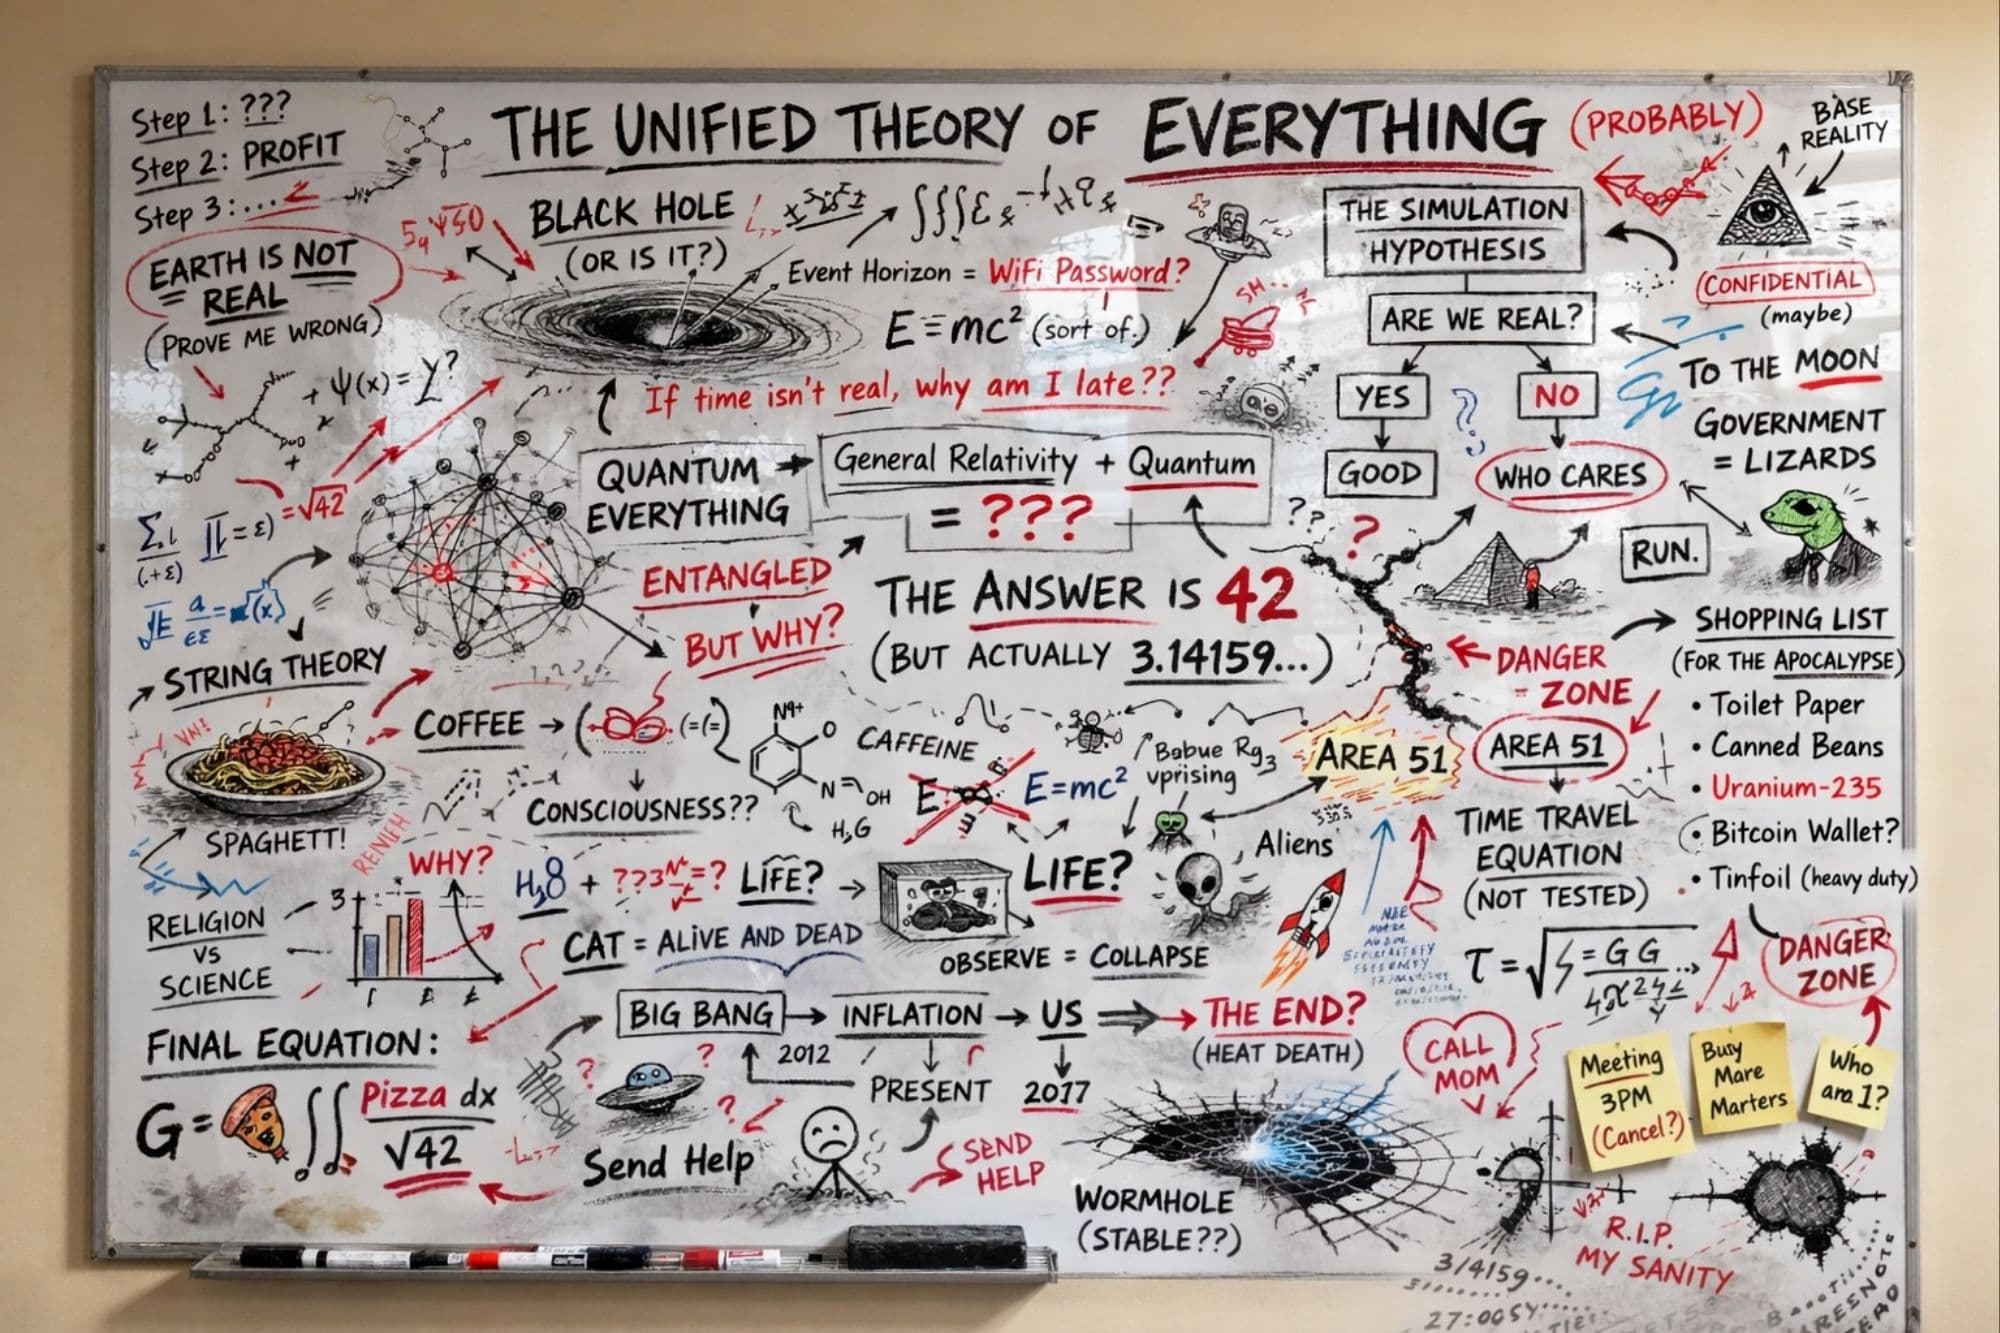 Step 1: ???
Step 2: PROFIT
Step 3: ....
THE UNIFIED THEORY OF EVERYTHING (PROBABLY)
BASE
REALITY
EARTH IS NOT
REAL
(PROVE ME WRONG)
BLACK HOLE
(OR IS IT?)
Event Horizon = WiFi Password?
E=mc² (sort of.)
If time isn't real, why am I late??
THE SIMULATION
HYPOTHESIS
ARE WE REAL?
YES
NO
GOOD
WHO CARES
CONFIDENTIAL
(maybe)
TO THE MOON
GOVERNMENT
= LIZARDS
RUN.
+ Ψ(x) =
=√42
QUANTUM
EVERYTHING
General Relativity + Quantum
= ???
ENTANGLED
BUT WHY?
THE ANSWER IS 42
(BUT ACTUALLY 3.14159...)
?? ?
DANGER
ZONE
AREA 51
AREA 51
SHOPPING LIST
(FOR THE APOCALYPSE)
• Toilet Paper
• Canned Beans
• Uranium-235
• Bitcoin Wallet?
• Tinfoil (heavy duty)
DANGER
ZONE
STRING THEORY
SPAGHETT!
COFFEE
CONSCIOUSNESS??
CAFFEINE
N
OH
O
E=mc²
uprising
Aliens
TIME TRAVEL
EQUATION
(NOT TESTED)
WHY?
3
LIFE?
LIFE?
RELIGION
VS
SCIENCE
CAT = ALIVE AND DEAD
OBSERVE = COLLAPSE
BIG BANG
INFLATION
US
THE END?
(HEAT DEATH)
2012
PRESENT
2017
CALL
MOM
Meeting
3PM
(Cancel?)
Buy
Mare
Marters
Who
am I?
FINAL EQUATION:
G =
∬
Pizza dx
√42
Send Help
SEND
HELP
WORMHOLE
(STABLE??)
R.I.P.
MY SANITY
3/4159...